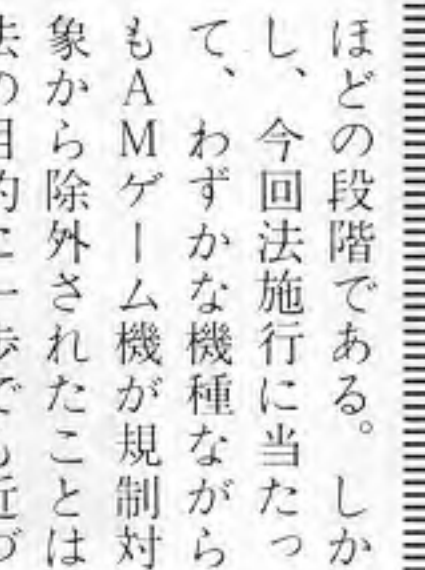 ほどの段階である。しか
し、今回法施行に当たっ
て、わずかな機種ながら
もAMゲーム機が規制対
象から除外されたことは
法の目的に一歩でも近づ